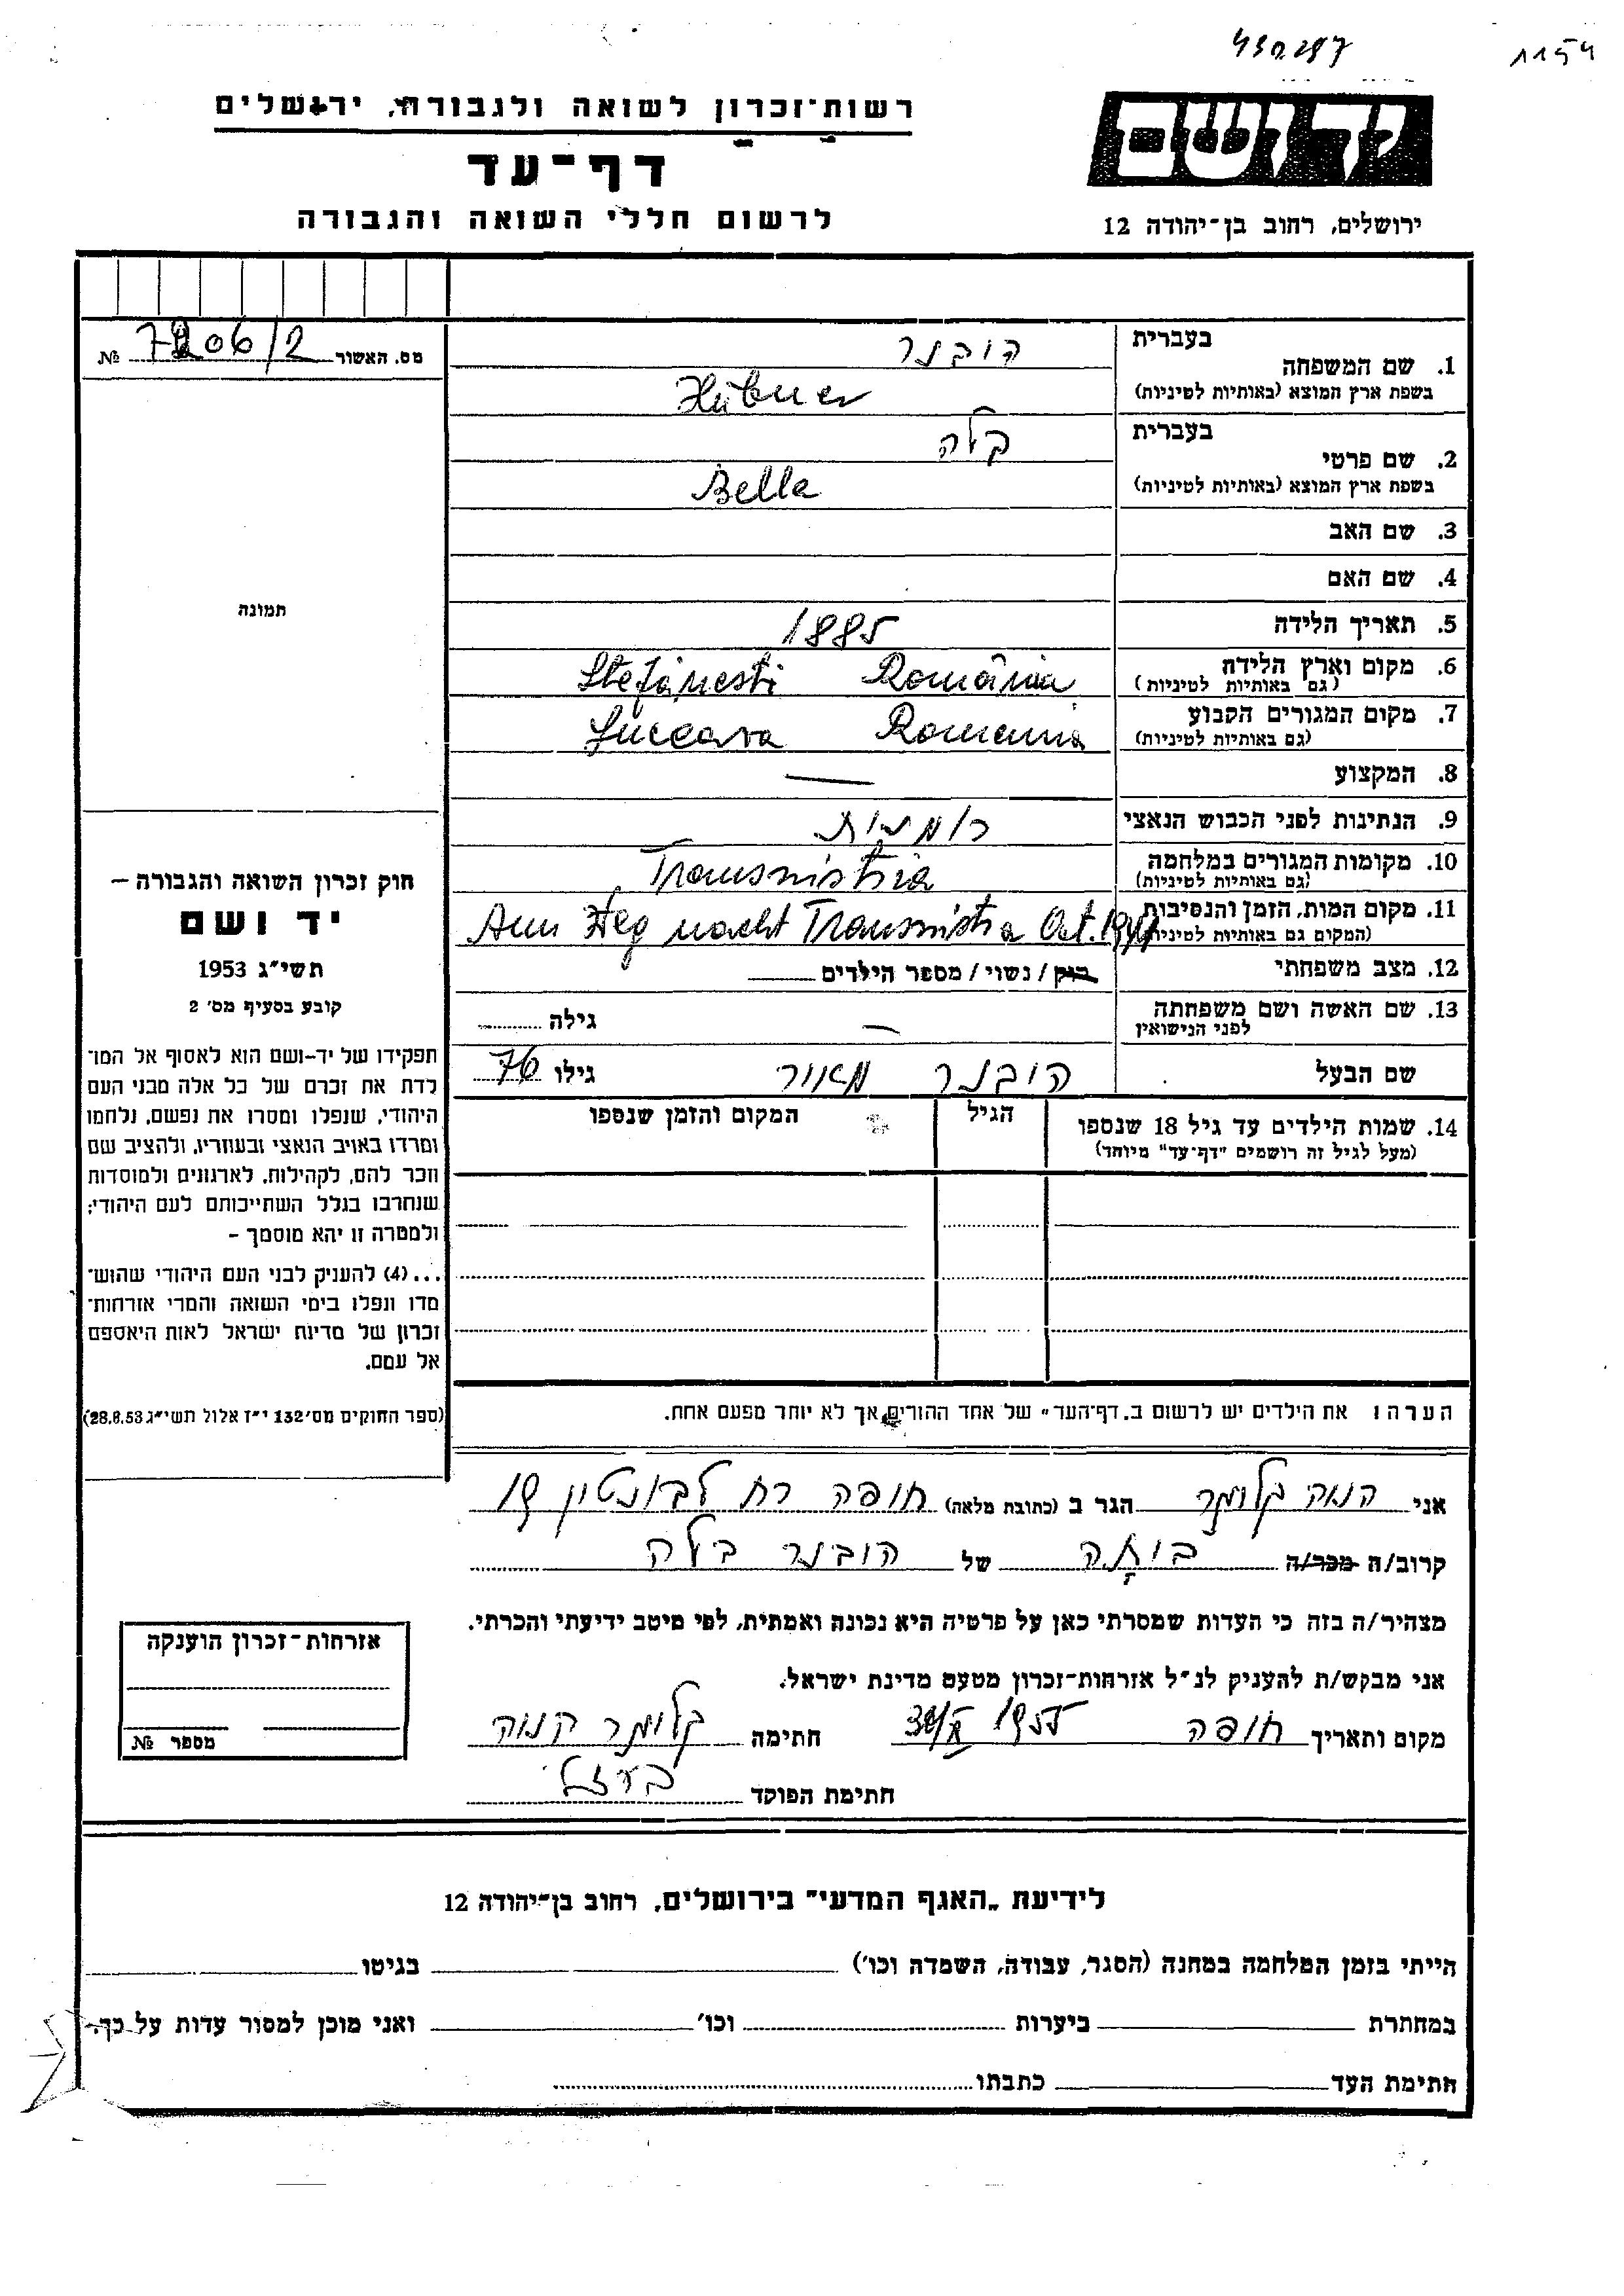 1154
רשות-זכרון לשואה ולגבורה, ירושלים
יד ושם
דף-עד
לרשום חללי השואה והגבורה
ירושלים, רחוב בן-יהודה 12
מס. האשור 7206/2 №
תמונה
1. שם המשפחה
בעברית
הובנר
בשפת ארץ המוצא (באותיות לטיניות)
Hübner
2. שם פרטי
בעברית
בלה
בשפת ארץ המוצא (באותיות לטיניות)
Bella
3. שם האב
4. שם האם
5. תאריך הלידה 1885
6. מקום וארץ הלידה Stefánesti România
(גם באותיות לטיניות)
7. מקום המגורים הקבוע Suceava Romania
(גם באותיות לטיניות)
8. המקצוע —
9. הנתינות לפני הכבוש הנאצי רומנית
10. מקומות המגורים במלחמה Transnistria
(גם באותיות לטיניות)
11. מקום המות, הזמן והנסיבות Am Weg nacht Transnistria Oct. 1941
(המקום גם באותיות לטיניות)
12. מצב משפחתי רוק / נשוי / מספר הילדים
13. שם האשה ושם משפחתה — גילה
לפני הנישואין
שם הבעל הובנר מאיר גילו 76
14. שמות הילדים עד גיל 18 שנספו הגיל המקום והזמן שנספו
(מעל לגיל זה רושמים "דף-עד" מיוחד)
הערה: את הילדים יש לרשום ב„דף-העד" של אחד ההורים, אך לא יותר מפעם אחת.
חוק זכרון השואה והגבורה –
יד ושם
תשי"ג 1953
קובע בסעיף מס' 2
תפקידו של יד-ושם הוא לאסוף אל המו־
לדת את זכרם של כל אלה מבני העם
היהודי, שנפלו ומסרו את נפשם, נלחמו
ומרדו באויב הנאצי ובעוזריו, ולהציב שם
וזכר להם, לקהילות, לארגונים ולמוסדות
שנחרבו בגלל השתייכותם לעם היהודי;
ולמטרה זו יהא מוסמך –
...(4) להעניק לבני העם היהודי שהוש־
מדו ונפלו בימי השואה והמרי אזרחות־
זכרון של מדינת ישראל לאות היאספם
אל עמם.
(ספר החוקים מס' 132 י"ז אלול תשי"ג 28.8.53)
אני חנה בלומר הגר ב (כתובת מלאה) חיפה רח לבונטין 19
קרוב/ה מכר/ה בתה של הובנר בלה
מצהיר/ה בזה כי העדות שמסרתי כאן על פרטיה היא נכונה ואמתית, לפי מיטב ידיעתי והכרתי.
אני מבקש/ת להעניק לנ"ל אזרחות-זכרון מטעם מדינת ישראל.
מקום ותאריך חיפה 1955 חתימה בלומר חנה
חתימת הפוקד
אזרחות-זכרון הוענקה
מספר №
לידיעת „האגף המדעי" בירושלים, רחוב בן-יהודה 12
הייתי בזמן המלחמה במחנה (הסגר, עבודה, השמדה וכו') בגיטו
במחתרת ביערות וכו' ואני מוכן למסור עדות על כך.
חתימת העד כתבתו